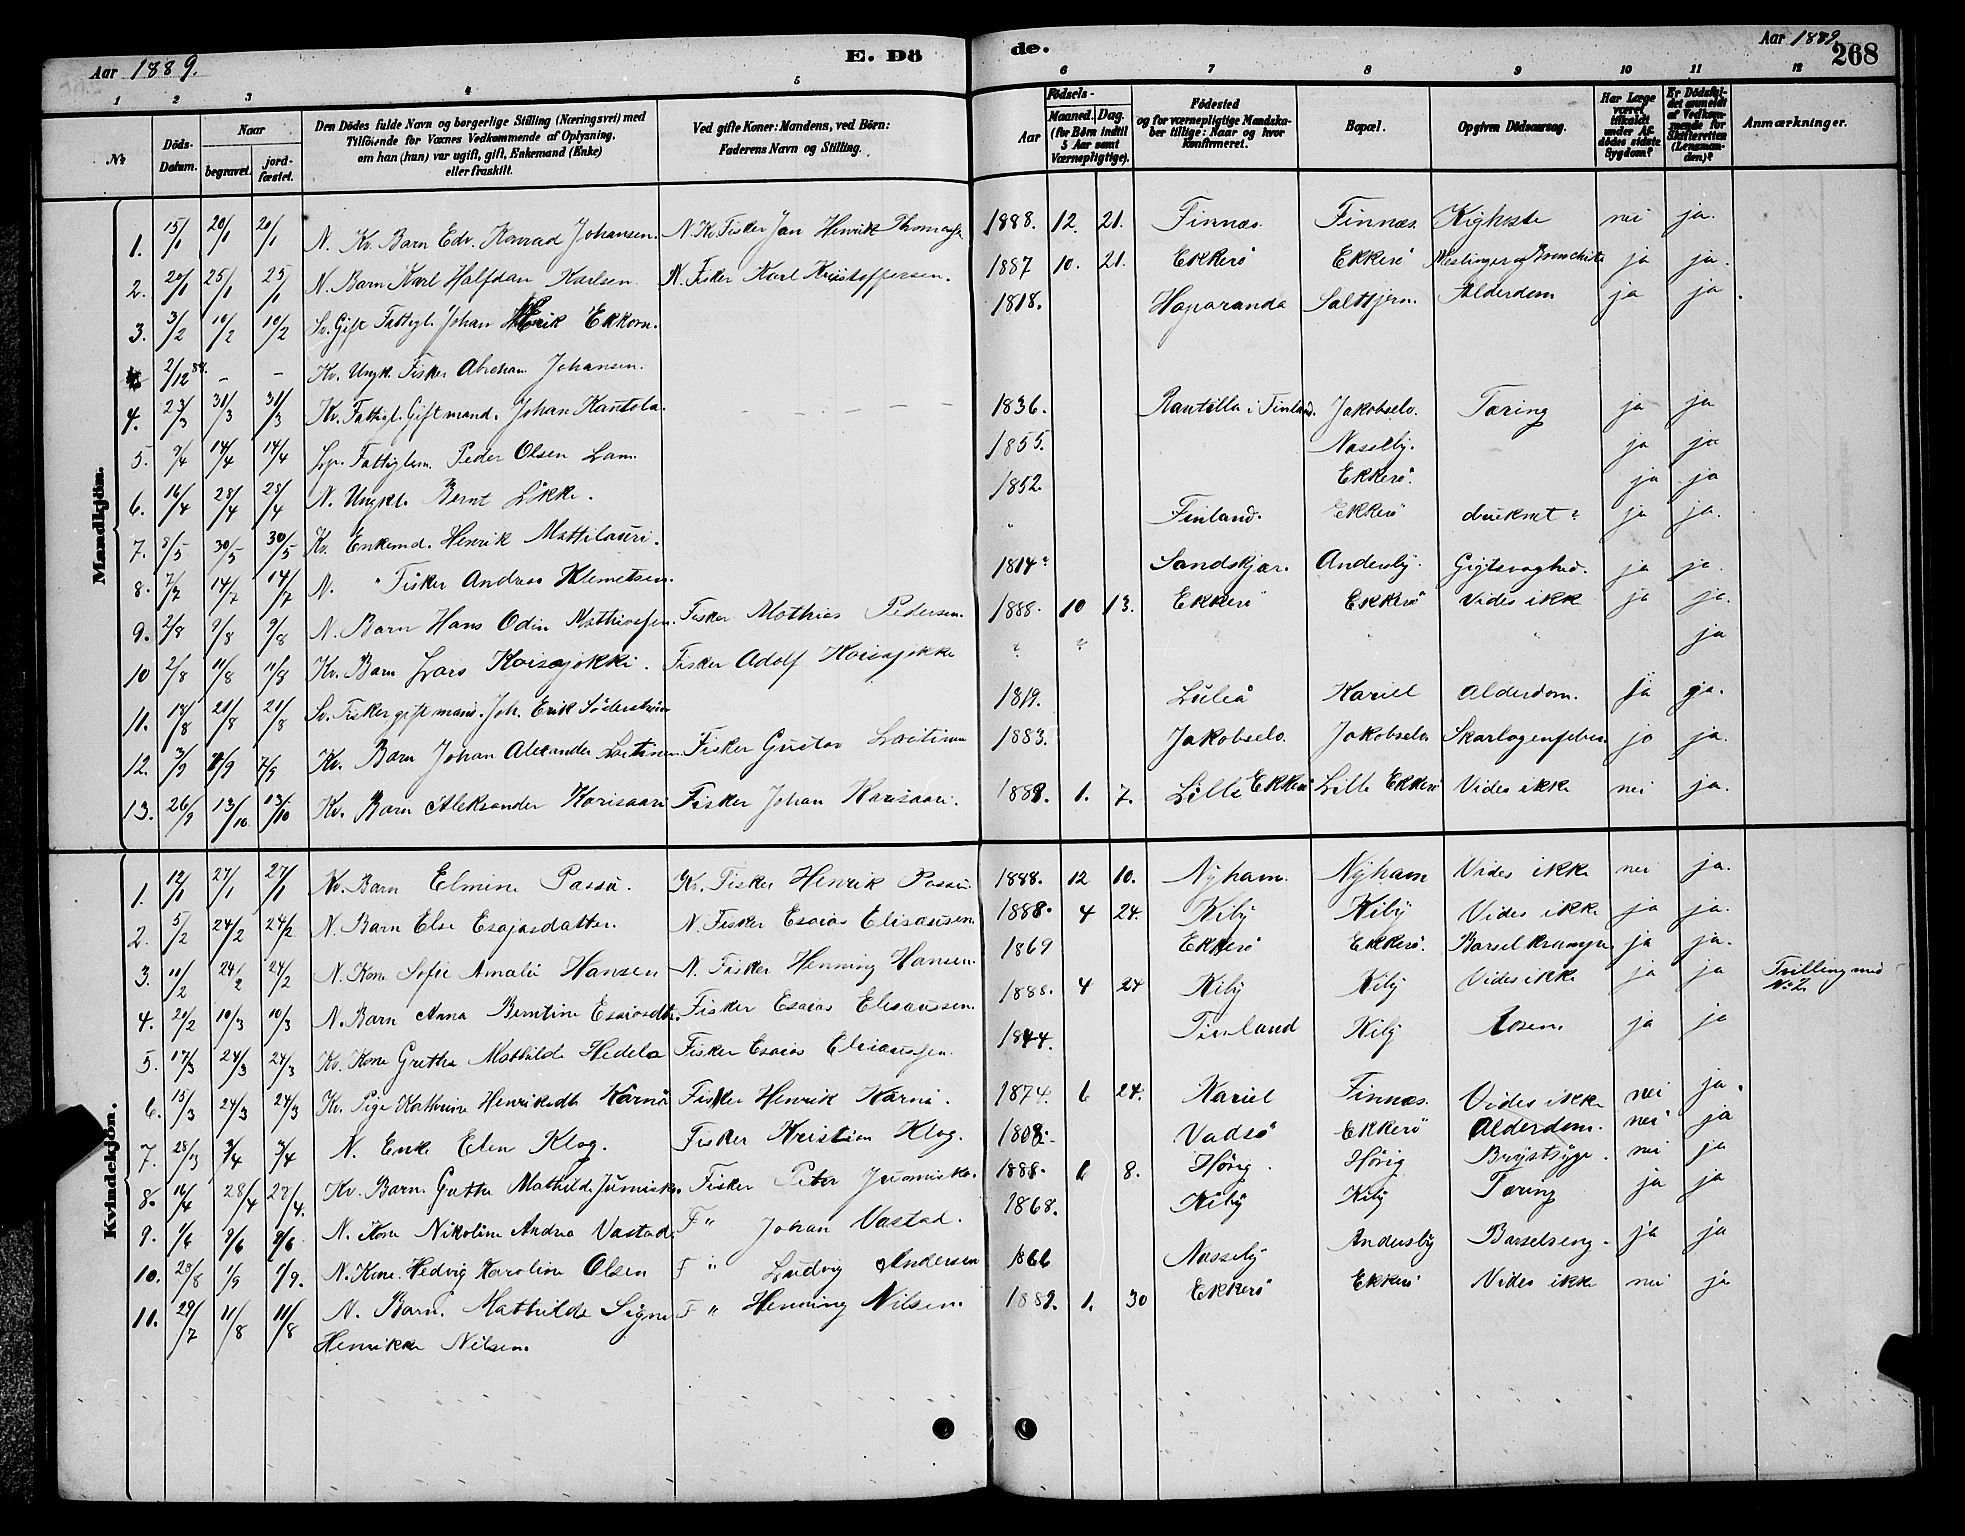 Aar 1889. E. Dö
de. Aar 1889. 268
1 2 3 4 5 6 7 8 9 10 11 12
№ Döds-Datum. Naar begravet. jord-fæstet. Den Dödes fulde Navn og borgerlige Stilling (Næringsvei) med Tilföiende for Voxnes Vedkommende af Oplysning, om han (hun) var ugift, gift, Enkemand (Enke) eller fraskilt. Ved gifte Koner: Mandens, ved Börn: Faderens Navn og Stilling. Födsels- Aar Maaned. Dag. (for Börn indtil 5 Aar samt Værnepligtige). Födested og for værnepligtige Mandskaber tillige: Naar og hvor konfirmeret. Bopæl. Opgiven Dödsaarsag. Har Læge været tilkaldt under Afdödes sidste Sygdom? Er Dödsfaldet anmeldt af Vedkommende for Skifteretten (Lensmanden)? Anmærkninger.
Mandkjön.
1. 15/1 20/1 20/1 N. Kv. Barn Edv. Konrad Johansen. N. Kv. Fisker Jan Henrik 1888. 12. 21. Finnæs. Finnæs. Kighoste nei ja.
2. 20/1 25/1 25/1 N. Barn Karl Halfdan Karlsen N. Fisker Karl Kristoffersen. 1887 10. 21. Ekkerö Ekkerö Meslinger og Bronchit ja ja.
3. 3/2 10/2 10/2 Sv. Gift Fattigl. Johan Erik Ekkorn. 1818. Haparanda Saltfjern Alderdom ja ja.
2/12 88. - - Kv. Ungk. Fisker Abraham Johansen.
4. 23/3 31/3 31/3 Kv. Fattigl. Giftmand. Johan Kantola. 1836. Rantilla i Finland. Jakobselv. Tæring ja ja
5. 9/4 14/4 14/4 Lp. Fattiglem. Peder Olsen Lam. 1855. Nasseby. ja ja
6. 16/4 28/4 28/4 N. Ungkl. Bernt Likke. 1852. Ekkerö. ja ja
7. 8/5 30/5 30/5 Kv. Enkemd. Henrik Mattilauri. " Finland. Ekkerö druknet? ja ja.
8. 7/7 14/7 14/7 N. " Fisker Andreas Klemetsen. 1814? Sandskjær. Andersby. Gigtsvaghed. ja ja.
9. 2/8 9/8 9/8 N. Barn Hans Odin Mathisesen. Fisker Mathias Pedersen. 1888. 10 13. Ekkerö Ekkerö Vides ikke ja ja.
10 2/8 11/8 11/8 Kv. Barn Lars Koisajokki. Fisker Adolf Koisajokke ? ? " " " ja
11. 18/8 21/8 21/8 Sv. Fisker gift mand. Joh. Erik Söderström 1819. Luleå Kariel Alderdom. ja ja.
12. 3/9 7/9 7/9 Kv. Barn Johan Alexander Laitinen. Fisker Gustav Laitinen 1883. Jakobselv. Jakobselv Skarlagensfeber ja ja.
13. 26/9 13/10 13/10 Kv. Barn Aleksander Korisaari Fisker Johan Karisaari. 1888. 1. 7. Lille Ekkerö Lille Ekkerö Vides ikke nei ja.
Kvindekjön.
1. 12/1 27/1 27/1 Kv. Barn Elmine Passi. Kv. Fisker Henrik Passi. 1888. 12 10. Nyhavn. Nyhavn Vides ikke nei ja.
2. 5/2 24/2 24/2 N. Barn Else Esajasdatter. N. Fisker Esaias Elisausen. 1888. 4 24. Kiby Kiby Vides ikke ja ja.
3. 11/2 24/2 24/2 N. Kone Sofie Amalie Hansen N. Fisker Henning Hansen. 1869 Ekkerö Ekkerö. Barselkramper ja ja.
4. 20/2 10/3 10/3 N. Barn Anna Berntine Esaiasdtr. Fisker Esaias Elisaussen. 1888. 4 24 Kiby Kiby Vides ikke ja ja Tvilling med No 2.
5. 17/3 24/3 24/3 Kv. Kone Grethe Mathilde Hedela Fisker Esaias Elisausen. 1844. Finland Kiby ja ja
6. 15/3 24/3 24/3 Kv. Pige Kathrine Henriksdtr. Karnä Fisker Henrik Karnä. 1874. 6 24. Kariel Finnæs. Vides ikke nei ja.
7. 28/3 3/4 3/4 N. Enke Elen Klog. Fisker Kristian Klog. 1808. Vadsö Ekkerö Alderdom. nei ja
8. 16/4 28/4 27/4. Kv. Barn. Grethe Mathilde Junnisko. Fisker Peter Junnisko. 1888. 6 8. Hönig. Hönig Brystsyge. nei ja
9. 1/6 9/6 9/6 N. Kone Nikoline Andrea Vastad F " Johan Vastad. 1868. Kiby Kiby Tæring ja ja
10. 28/8 1/9 1/9. N. Kone. Hedvig Karoline Olsen F " Ludvig Andersen 1866 Nasseby Andersby Barselseng. ja ja
11. 29/7 11/8 11/8 N. Barn. Mathilde Signe F " Henning Nilsen. 1889. 1. 30 Ekkerö Ekkerö Vides ikke nei ja
Henrikke Nilsen.